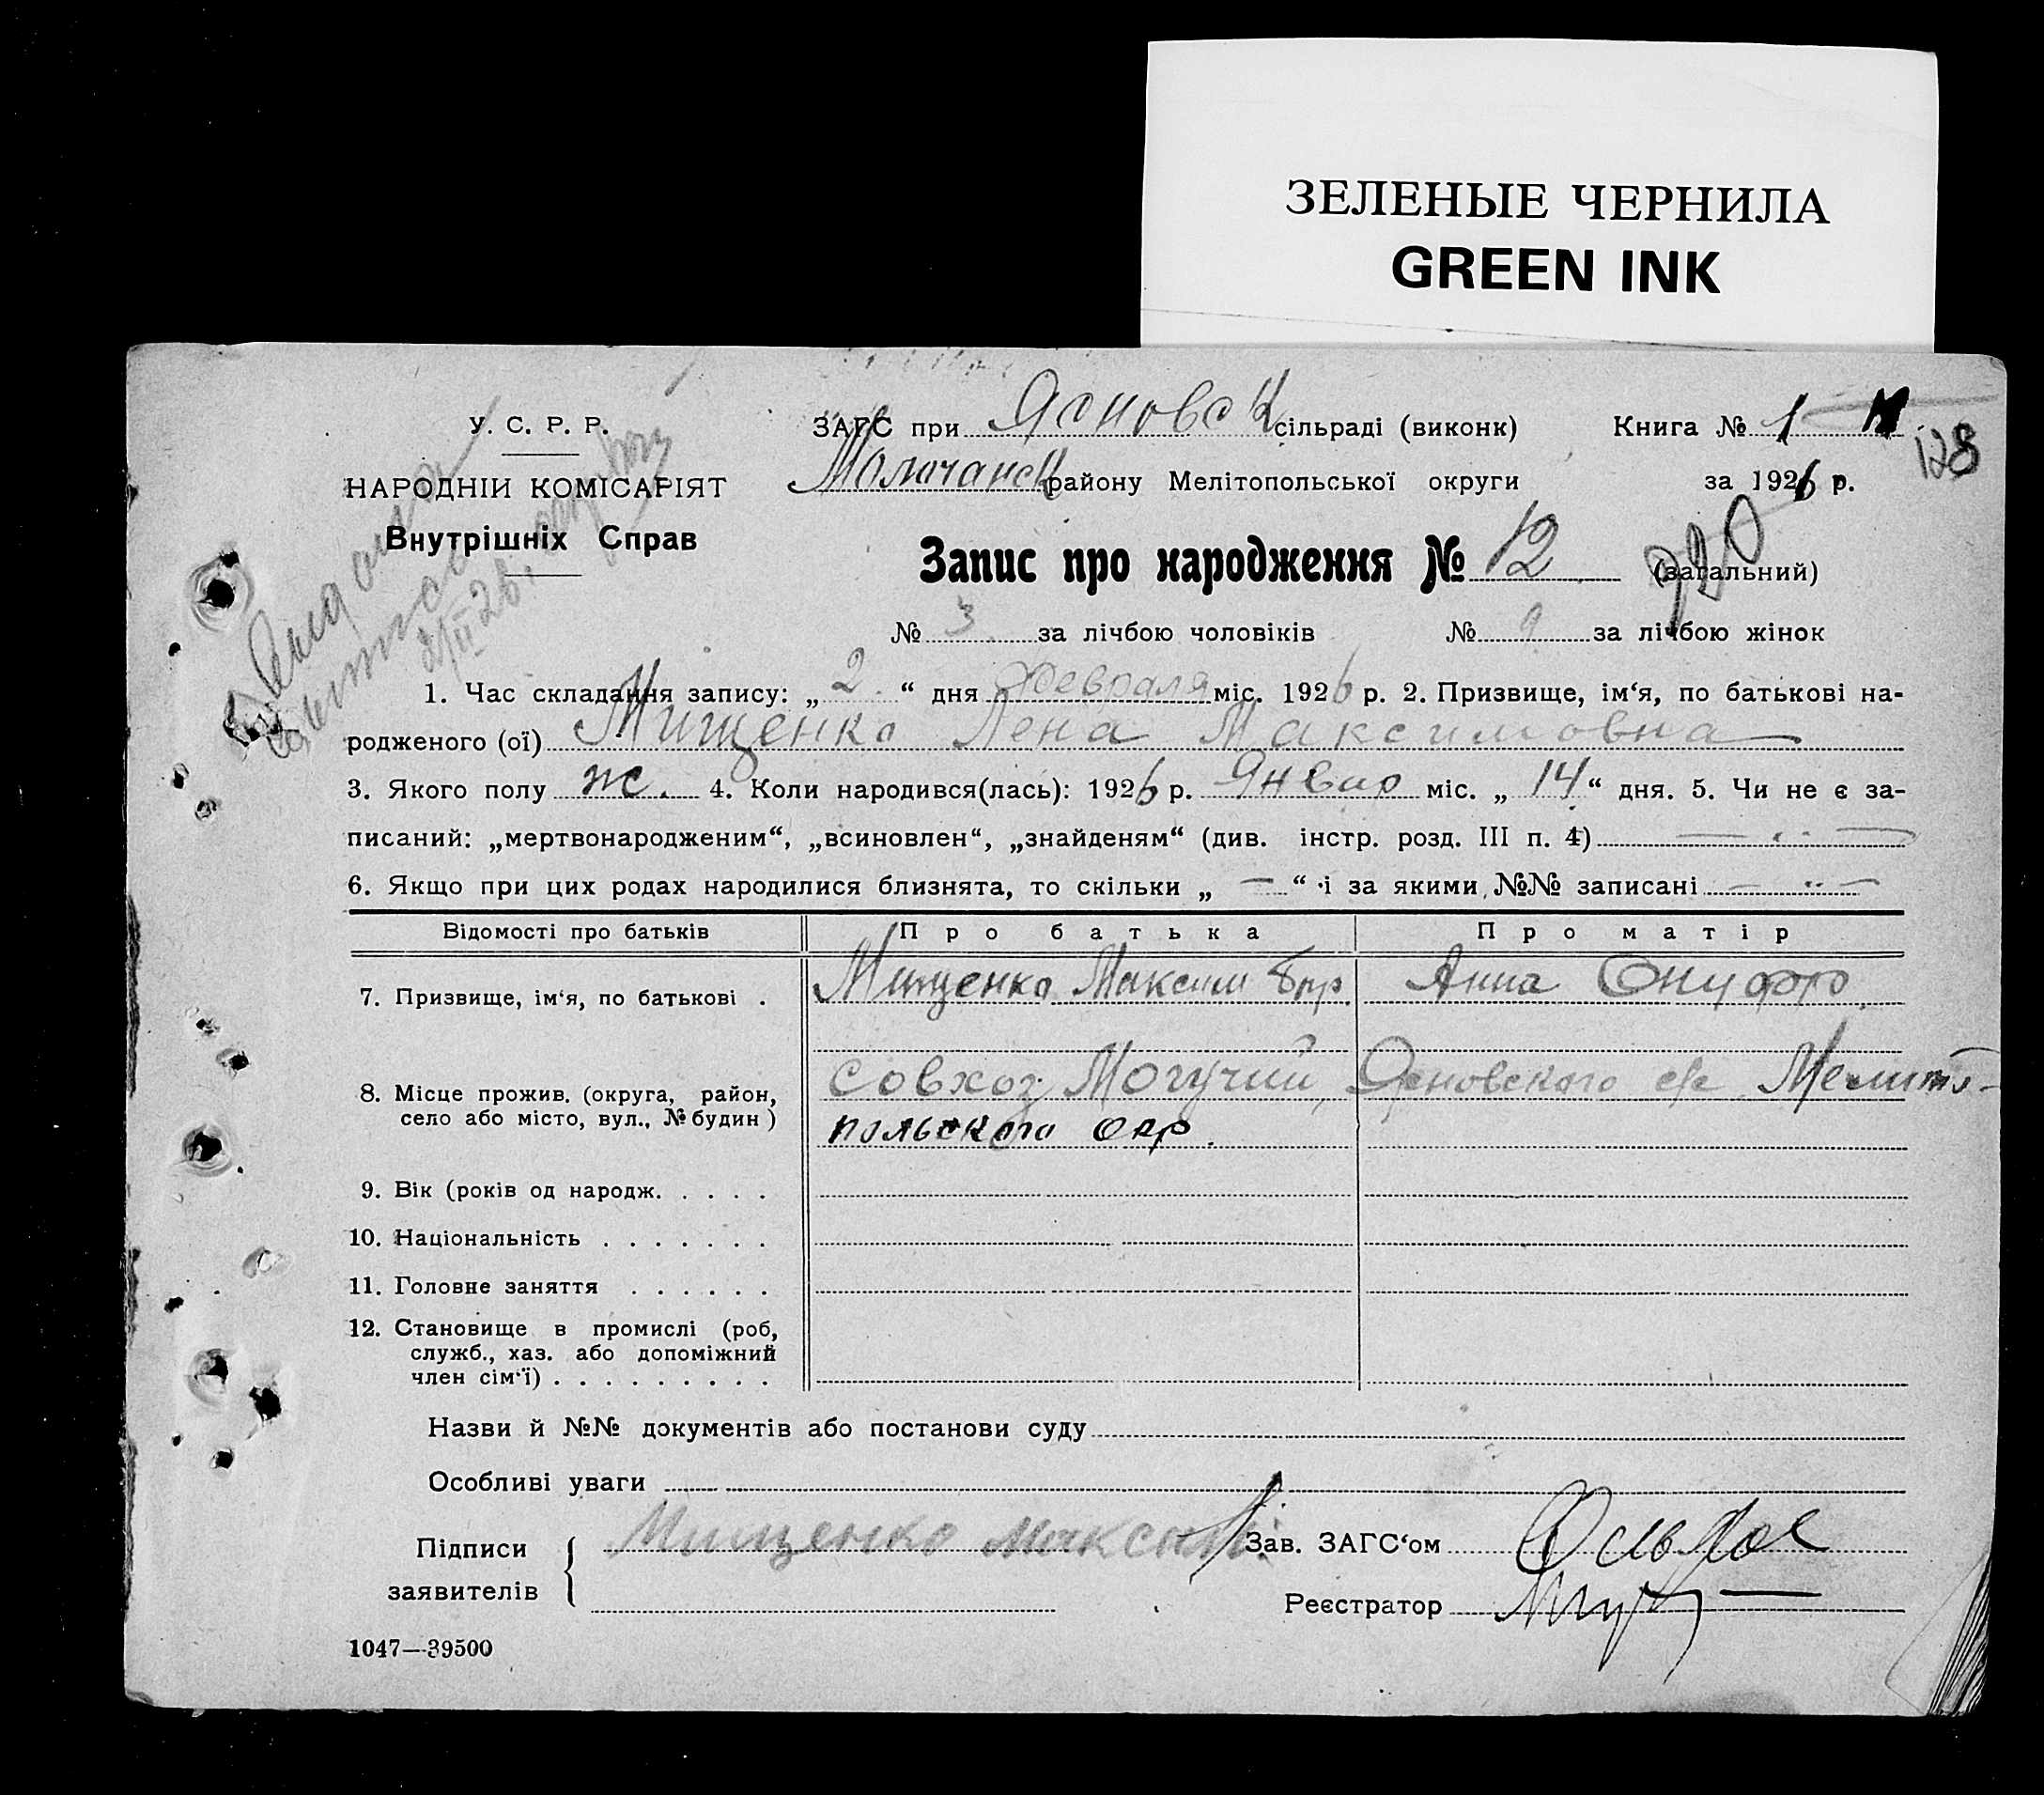 ЗЕЛЕНЫЕ ЧЕРНИЛА
GREEN INK
У. С. Р. Р.
НАРОДНІЙ КОМІСАРІЯТ
Внутрішніх Справ
ЗАГС при Ясновск сільраді (виконк) Книга № 1
128
Молочанск району Мелітопольської округи за 1926 р.
Запис про народження № 12 (загальний)
920
№ 3 за лічбою чоловіків № 9 за лічбою жінок
1. Час складання запису: „ 2 “ дня Февраля міс. 1926 р. 2. Призвище, ім‘я, по батькові на-
родженого (ої) Мищенко Лена Максимовна
3. Якого полу ж. 4. Коли народився(лась): 1926 р. Январ міс. „ 14 “ дня. 5. Чи не є за-
писаний: „мертвонародженим“, „всиновлен“, „знайденям“ (див. інстр. розд. III п. 4)
6. Якщо при цих родах народилися близнята, то скільки „ — “ і за якими №№ записані
Відомості про батьків Про батька Про матір
7. Призвище, ім‘я, по батькові . Мищенко Максим Анна Онуфр.
8. Місце прожив. (округа, район,
село або місто, вул., № будин)
совхоз Могучий, Ясновского с/с Мелито-
польского окр.
9. Вік (років од народж. . . . .
10. Національність . . . . . . .
11. Головне заняття . . . . . .
12. Становище в промислі (роб,
служб., хаз. або допоміжний
член сім‘ї) . . . . . . . . .
Назви й №№ документів або постанови суду
Особливі уваги
Підписи
заявителів
Мищенко Максим
Зав. ЗАГС‘ом
Реєстратор
1047—39500